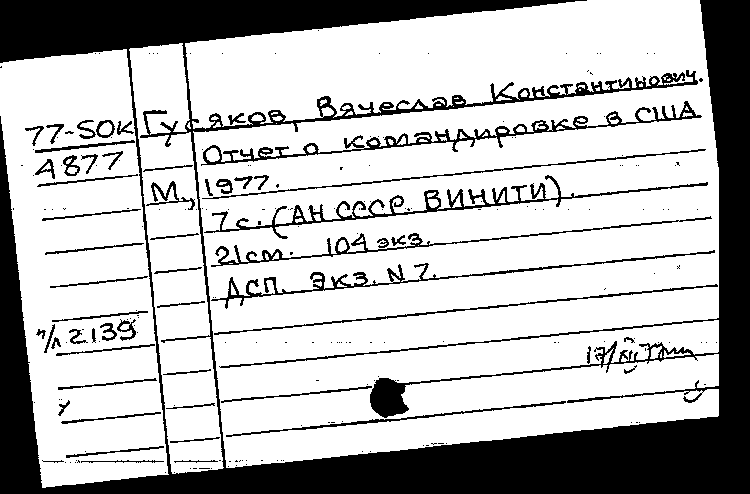 77-SOK Гусяков, Вячеслав Константинович.
4877 Отчет о командировке в США
М., 1977.
7 с. (АН СССР. ВИНИТИ).
21 см. 104 экз.
ДСП. Экз. N 7.
ч/л 2139
17/XII